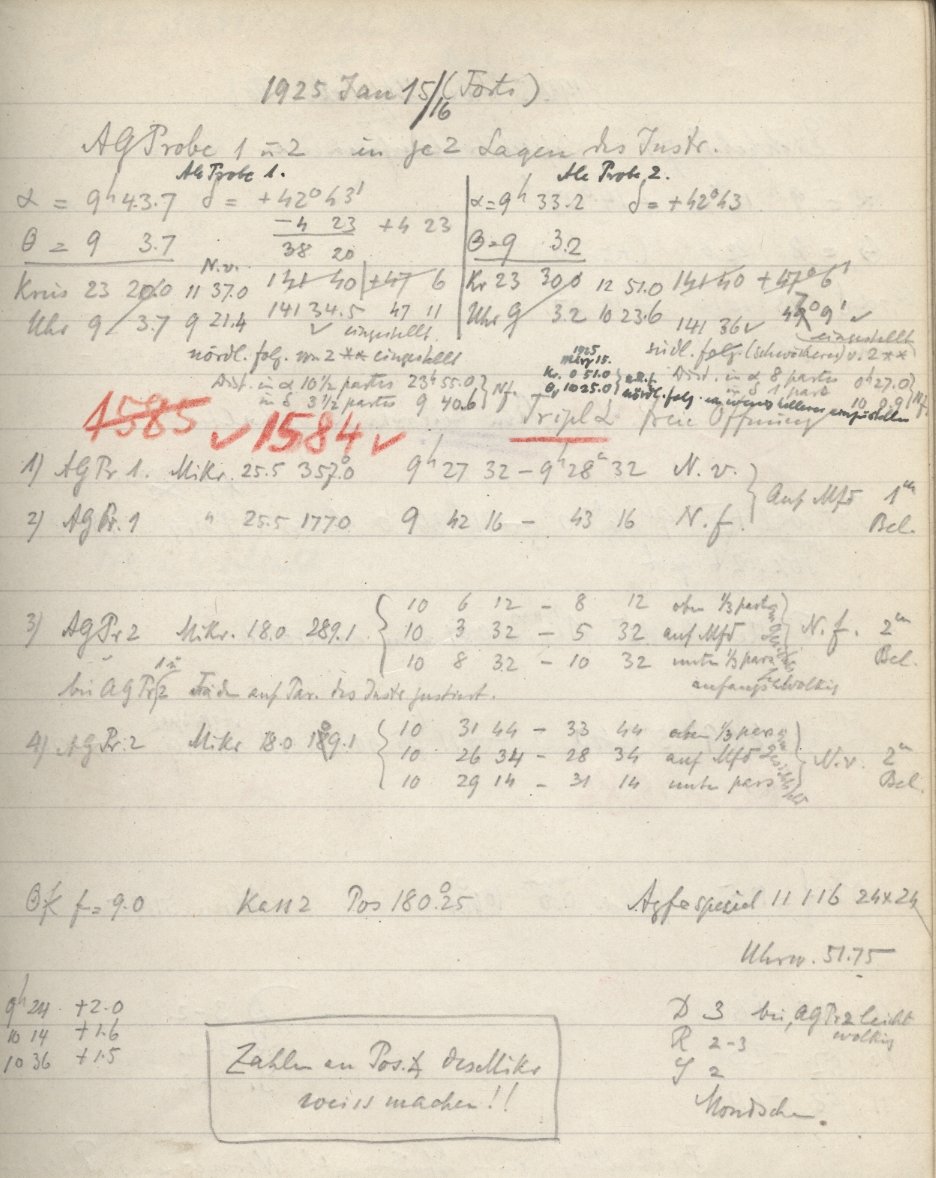 1925 Jan 15/16 (Forts)
AG Probe 1 u 2 in je 2 Lagen des Instr.
AG Probe 1.
α = 9h 43.7 δ = +42° 43'
-4 23 +4 23
θ = 9 3.7 38 20
N.v.
Kreis 23 20.0 11 37.0 141 40 +47 6
Uhr 9 3.7 9 21.4 141 34.5 47 11
✓ eingestellt
nördl. folg. von 2 ** eingestellt
Dist. in α 10½ partes 23h 55.0 } N.f.
in δ 3½ partes 9 40.6
AG Probe 2.
α = 9h 33.2 δ = +42° 43
θ = 9 3.2
Kr 23 30.0 12 51.0 141 40 +47° 6'
Uhr 9 3.2 10 23.6 141 36 ✓ 9' ✓
eingestellt
südl. folg. (schwächeren) v. 2 **
Dist. in α 8 partes 0h 27.0 } N.f.
in δ 1 part 10 0.9
1925
März 15.
Kr. 0 51.0
θ, 10 25.0
nördl. folg. einzustellen
1585 ✓ 1584 ✓
Tripl L freie Öffnung
1) AG Pr 1. Mikr. 25.5 357.0 9h 27 32 – 9h 28m 32 N.v. } Auf Mfd 1m Bel.
2) AG Pr. 1 " 25.5 177.0 9 42 16 – 43 16 N.f.
3) AG Pr 2 Mikr. 18.0 289.1 { 10 6 12 – 8 12 oben 1/3 partes
10 3 32 – 5 32 auf Mfd } N.f. 2m Bel.
10 8 32 – 10 32 unten 1/3 pars
anfangs wolkig
bei AG Pr 1 u 2 Faden auf Par. des Instr justiert.
4) AG Pr. 2 Mikr 18.0 189.1 { 10 31 44 – 33 44 oben 1/3 pars
10 26 34 – 28 34 auf Mfd } N.v. 2m Bel.
10 29 14 – 31 14 unten pars
f = 9.0 Kass 2 Pos 180°.25 Agfa spezial 11 1 16 24×24
Uhrw. 51.75
9h 24 +2.0
10 14 +1.6
10 36 +1.5
Zahlen an Pos. ∡ des Mikr
weiss machen!!
D 3 bei AG Pr 2 leicht
wolkig
R 2-3
S 2
Mondschein.